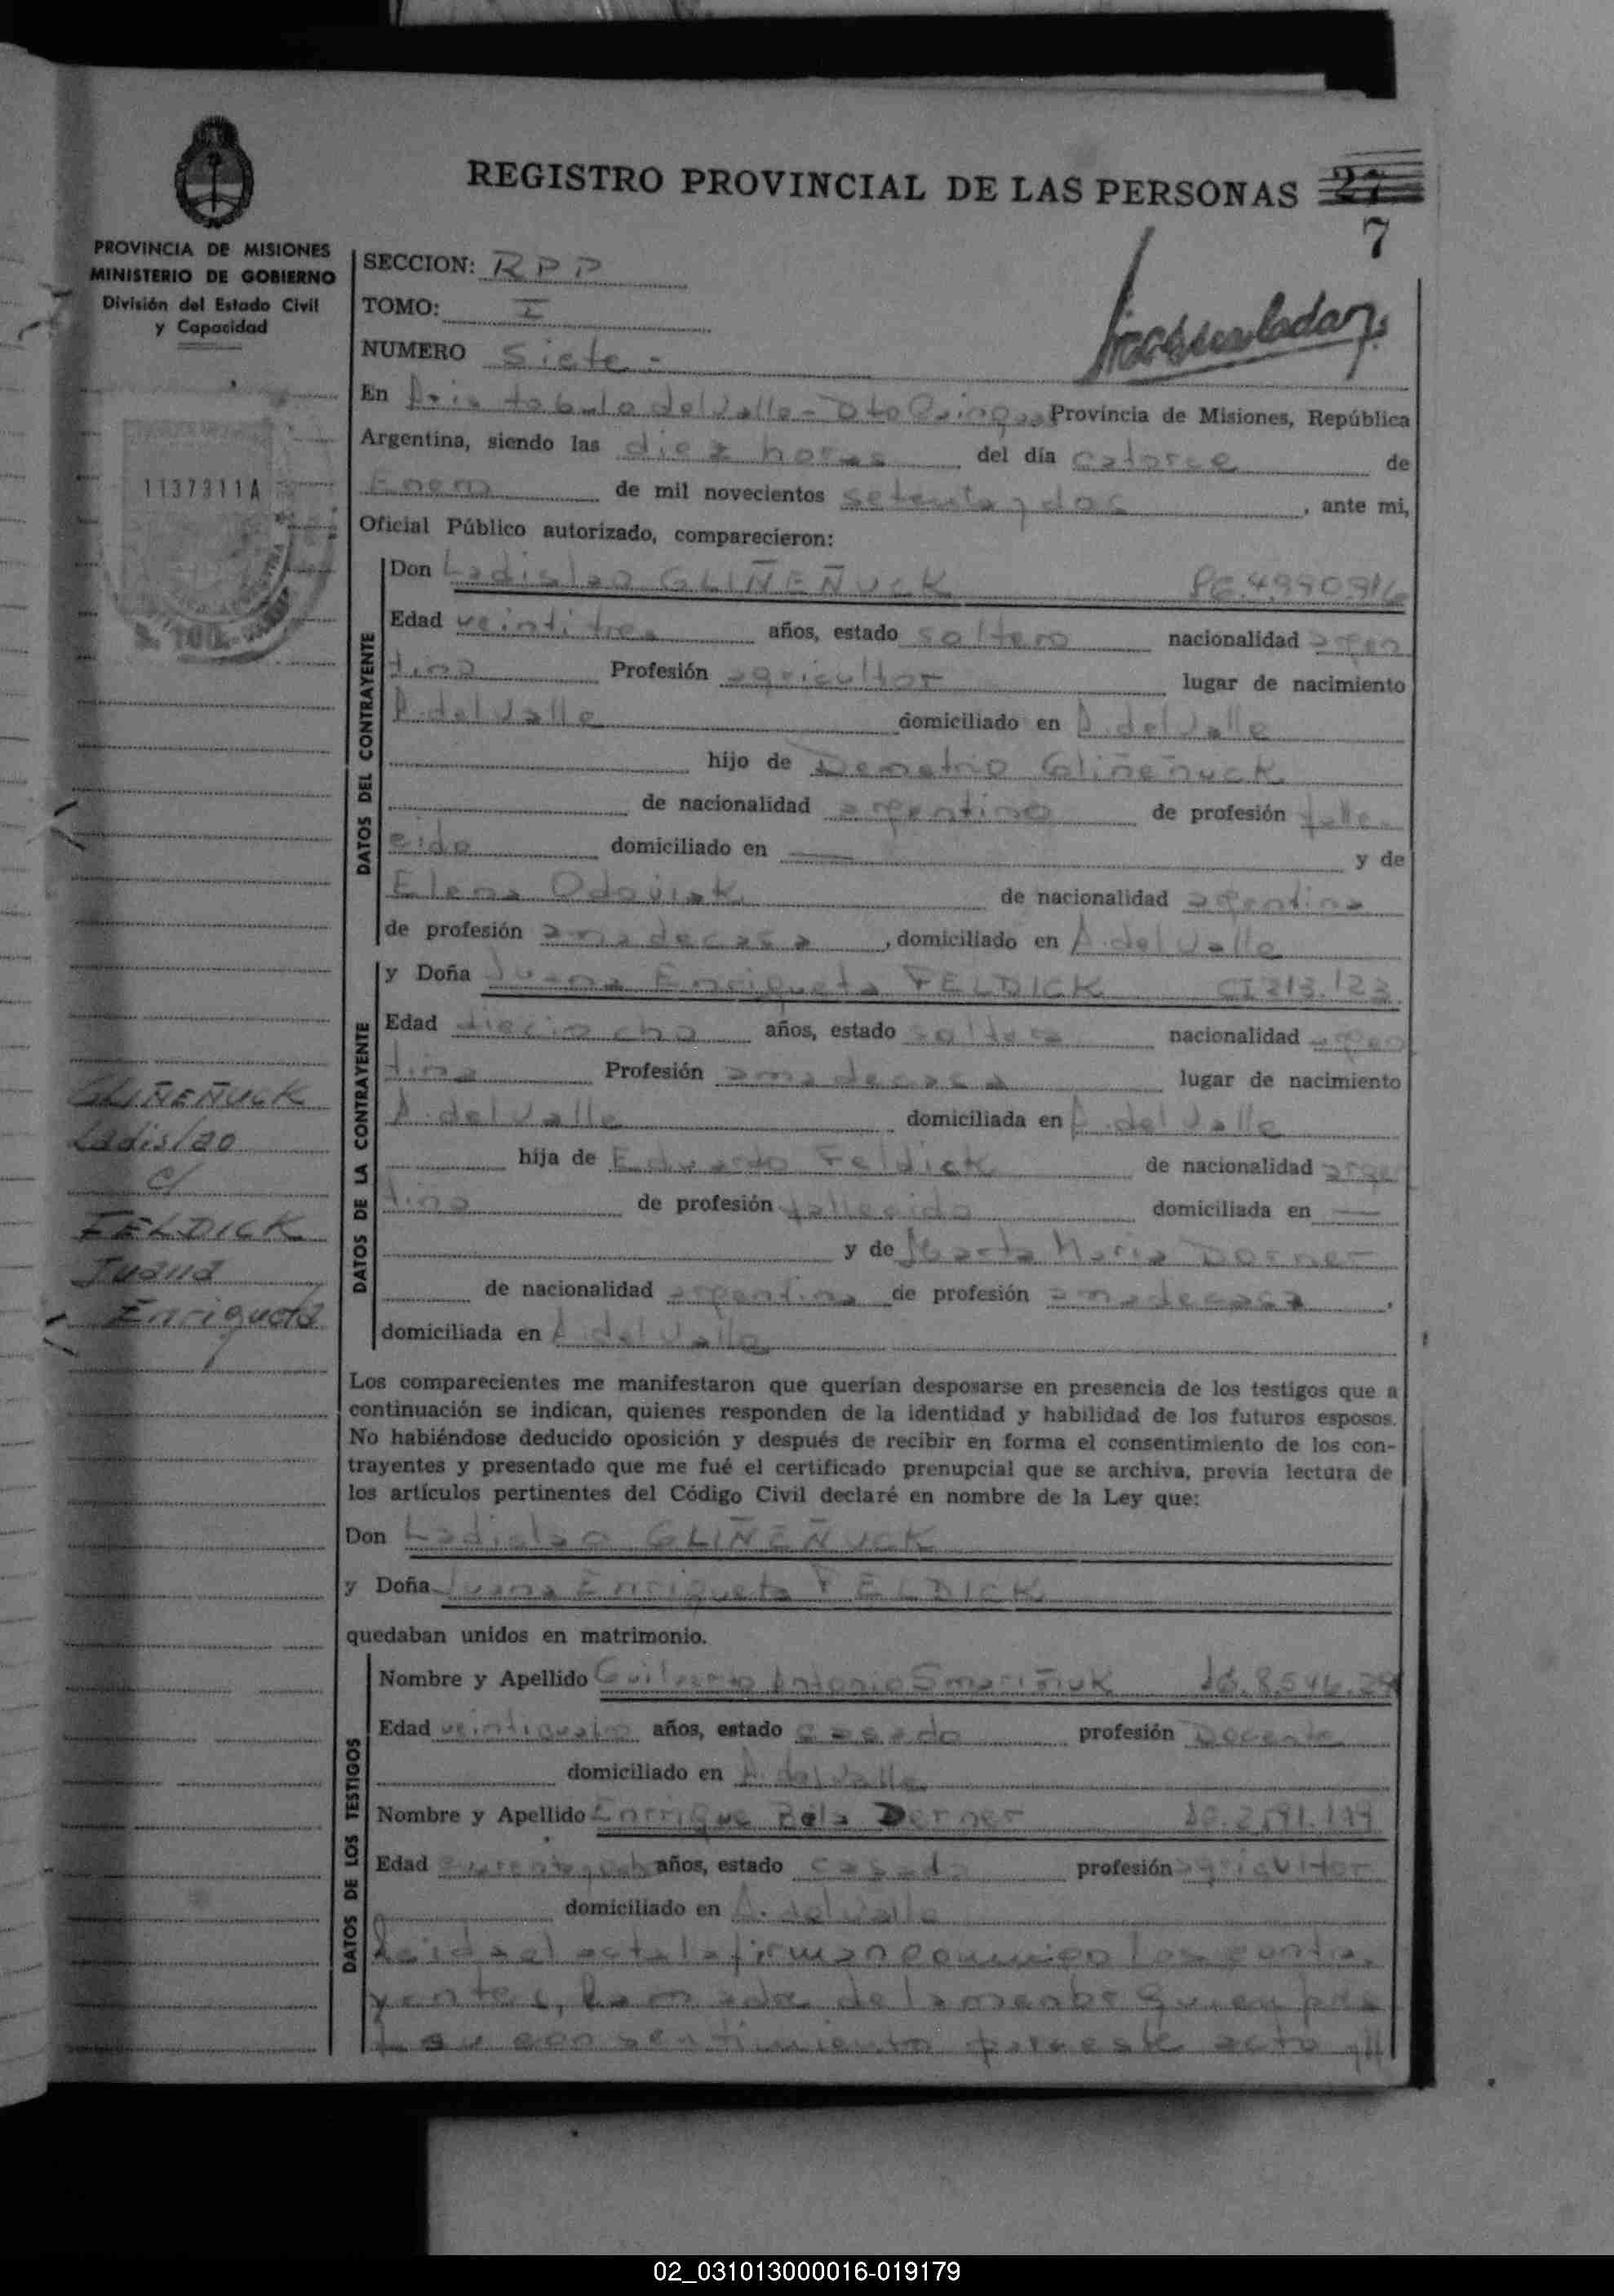 REGISTRO PROVINCIAL DE LAS PERSONAS 27
7
PROVINCIA DE MISIONES
MINISTERIO DE GOBIERNO
División del Estado Civil
y Capacidad
1137311A
SECCION: RPP
TOMO: I
NUMERO Siete -
En Aristobulo del Valle - Dto Provincia de Misiones, República
Argentina, siendo las diez horas del día catorce de
Enero de mil novecientos setenta y dos, ante mi,
Oficial Público autorizado, comparecieron:
DATOS DEL CONTRAYENTE
Don Ladislao GLIÑEÑUCK
Edad veintitres años, estado soltero nacionalidad argen
tina Profesión agricultor lugar de nacimiento
A. del Valle domiciliado en A. del Valle
hijo de Demetrio Gliñeñuck
de nacionalidad argentino de profesión falle
cido domiciliado en — y de
Elena de nacionalidad argentina
de profesión ama de casa, domiciliado en A. del Valle
DATOS DE LA CONTRAYENTE
y Doña Juana Enriqueta FELDICK CI 213.123
Edad dieciocho años, estado soltera nacionalidad argen
tina Profesión ama de casa lugar de nacimiento
A. del Valle domiciliada en A. del Valle
hija de Eduardo Feldick de nacionalidad argen
tino de profesión fallecido domiciliada en —
y de Marta Maria Derner
de nacionalidad argentina de profesión ama de casa,
domiciliada en A. del Valle
GLIÑEÑUCK
Ladislao
c/
FELDICK
Juana
Enriqueta
Los comparecientes me manifestaron que querían desposarse en presencia de los testigos que a
continuación se indican, quienes responden de la identidad y habilidad de los futuros esposos.
No habiéndose deducido oposición y después de recibir en forma el consentimiento de los con-
trayentes y presentado que me fué el certificado prenupcial que se archiva, previa lectura de
los artículos pertinentes del Código Civil declaré en nombre de la Ley que:
Don Ladislao GLIÑEÑUCK
y Doña Juana Enriqueta FELDICK
quedaban unidos en matrimonio.
DATOS DE LOS TESTIGOS
Nombre y Apellido Guillermo Antonio Smariñuk
Edad veinticuatro años, estado casado profesión Docente
domiciliado en A. del Valle
Nombre y Apellido Enrique Derner
Edad años, estado casado profesión agricultor
domiciliado en A. del Valle
Leida el acta la firman conmigo los contra
yentes, la madre de la menor quien
su consentimiento para este acto
02_031013000016-019179